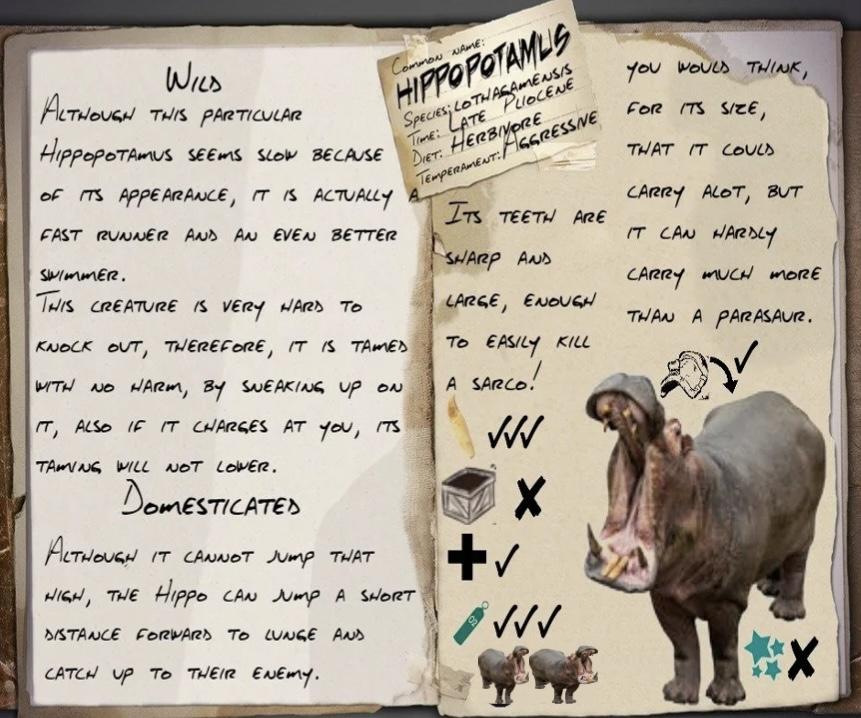 Wild
Although this particular
Hippopotamus seems slow because
of its appearance, it is actually a
fast runner and an even better
swimmer.
This creature is very hard to
knock out, therefore, it is tamed
with no harm, by sneaking up on
it, also if it charges at you, its
taming will not lower.
Domesticated
Although it cannot jump that
high, the Hippo can jump a short
distance forward to lunge and
catch up to their enemy.
Common name:
Hippopotamus
Species: Lothagamensis
Time: Late Pliocene
Diet: Herbivore
Temperament: Aggressive
Its teeth are
sharp and
large, enough
to easily kill
a Sarco!
O2
you would think,
for its size,
that it could
carry alot, but
it can hardly
carry much more
than a Parasaur.